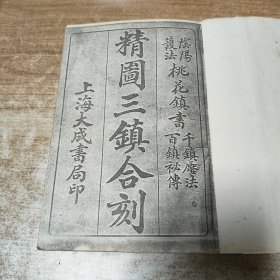 陰陽護法
桃花鎮書
千鎮魘法
百鎮祕傳
精圖三鎮合刻
上海大成書局印